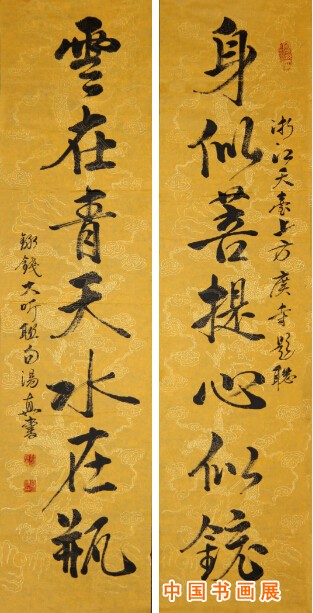 浙江天臺上方廣寺題聯
身似菩提心似鏡
雲在青天水在瓶
錄錢大昕聯句湯真書
中国书画展